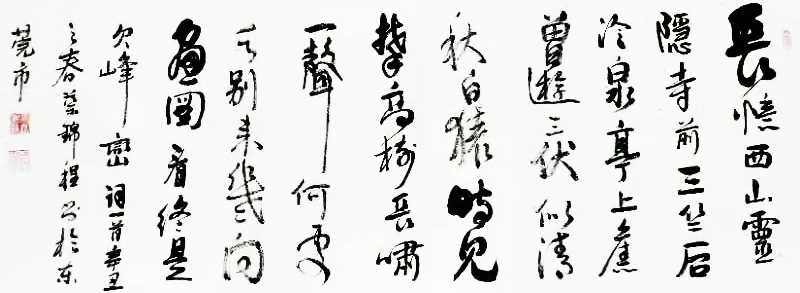 長憶西山靈
隱寺前三竺后
冷泉亭上舊
曾遊三伏似清
秋白猿時見
攀高樹長嘯
一聲何處
去別來幾向
畫圖看終是
欠峰巒 詞一首辛丑
之春蔡錦程書於東
莞市